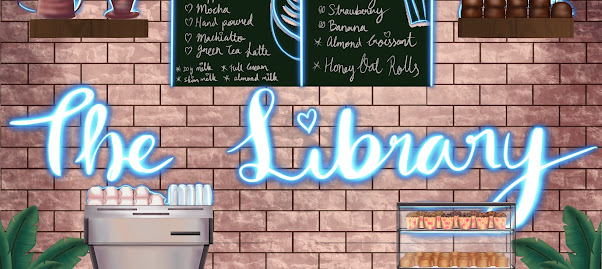 Mocha
Hand poured
Machiatto
Green Tea Latte
* soy milk * full cream
* skim milk * almond milk
Strawberry
Banana
* Almond Croissant
* Honey Oat Rolls
The Library